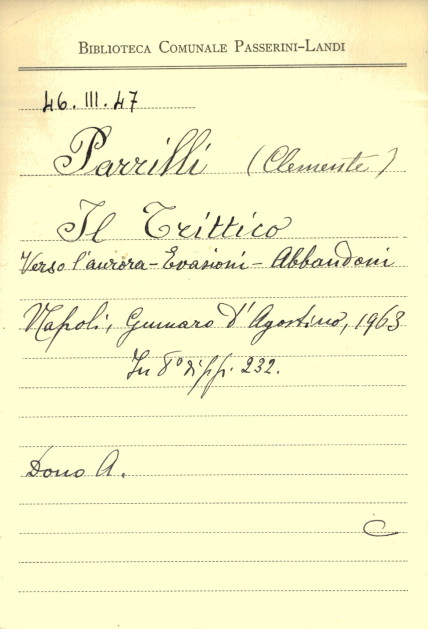 BIBLIOTECA COMUNALE PASSERINI-LANDI
46. III. 47
Parrilli (Clemente)
Il Trittico
Verso l'aurora - Evasioni - Abbandoni
Napoli, Gennaro D'Agostino, 1963
In 8° di pp. 232.
Dono A.
C